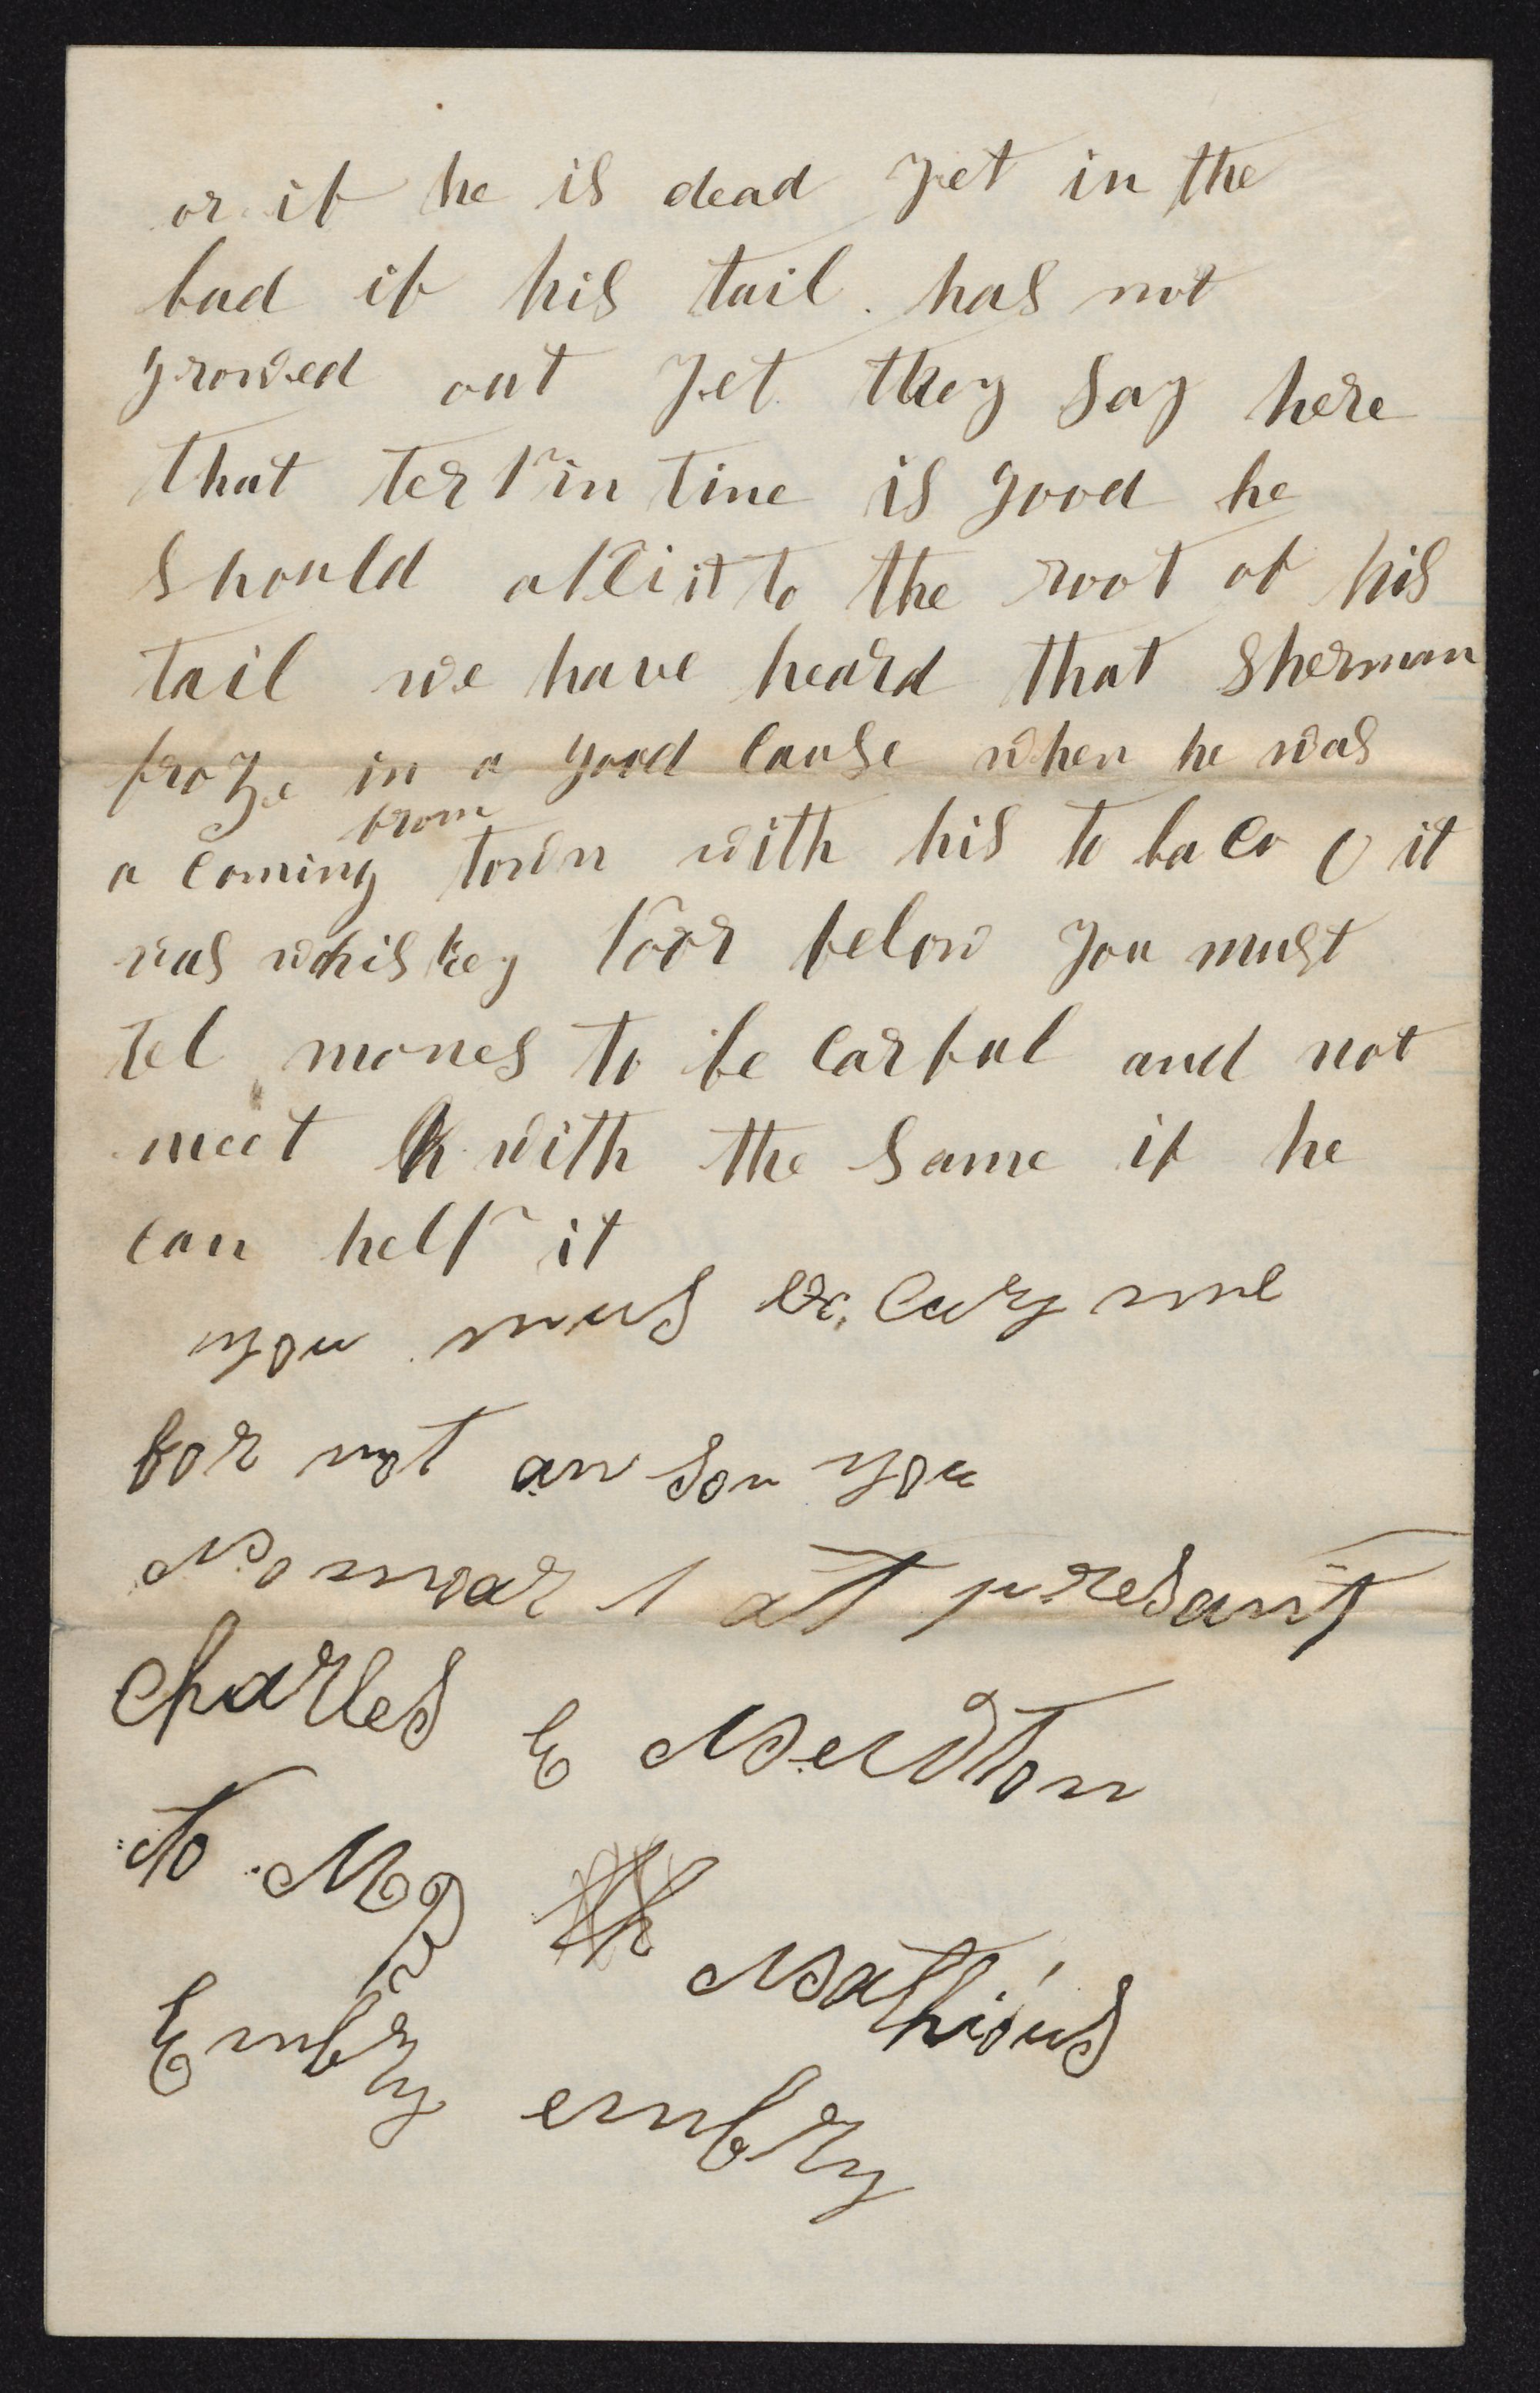 or if he is dead yet in the
bud if his tail has not
growed out yet they say here
that terpin tine is good he
should apli it to the root of his
tail we have heard that Sherman
froze in a good cause when he was
a coming from town with his to baco O it
was whiskey poor felow you must
tel mones to be carful and not
meet with the same if he
can help it
you mus Ex, cuzy me
for not an son you
No mor 1 at presant
Charles E Newton
to Mr Mathious
Embry embry